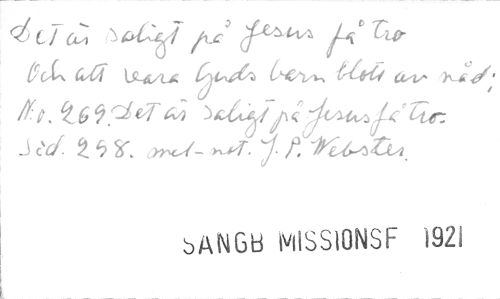 Det är saligt på Jesus få tro
Och att vara Guds barn blott av nåd;
No. 269. Det är saligt på Jesus få tro.
Sid. 298. mel-not. J. P. Webster.
SANGB MISSIONSF 1921